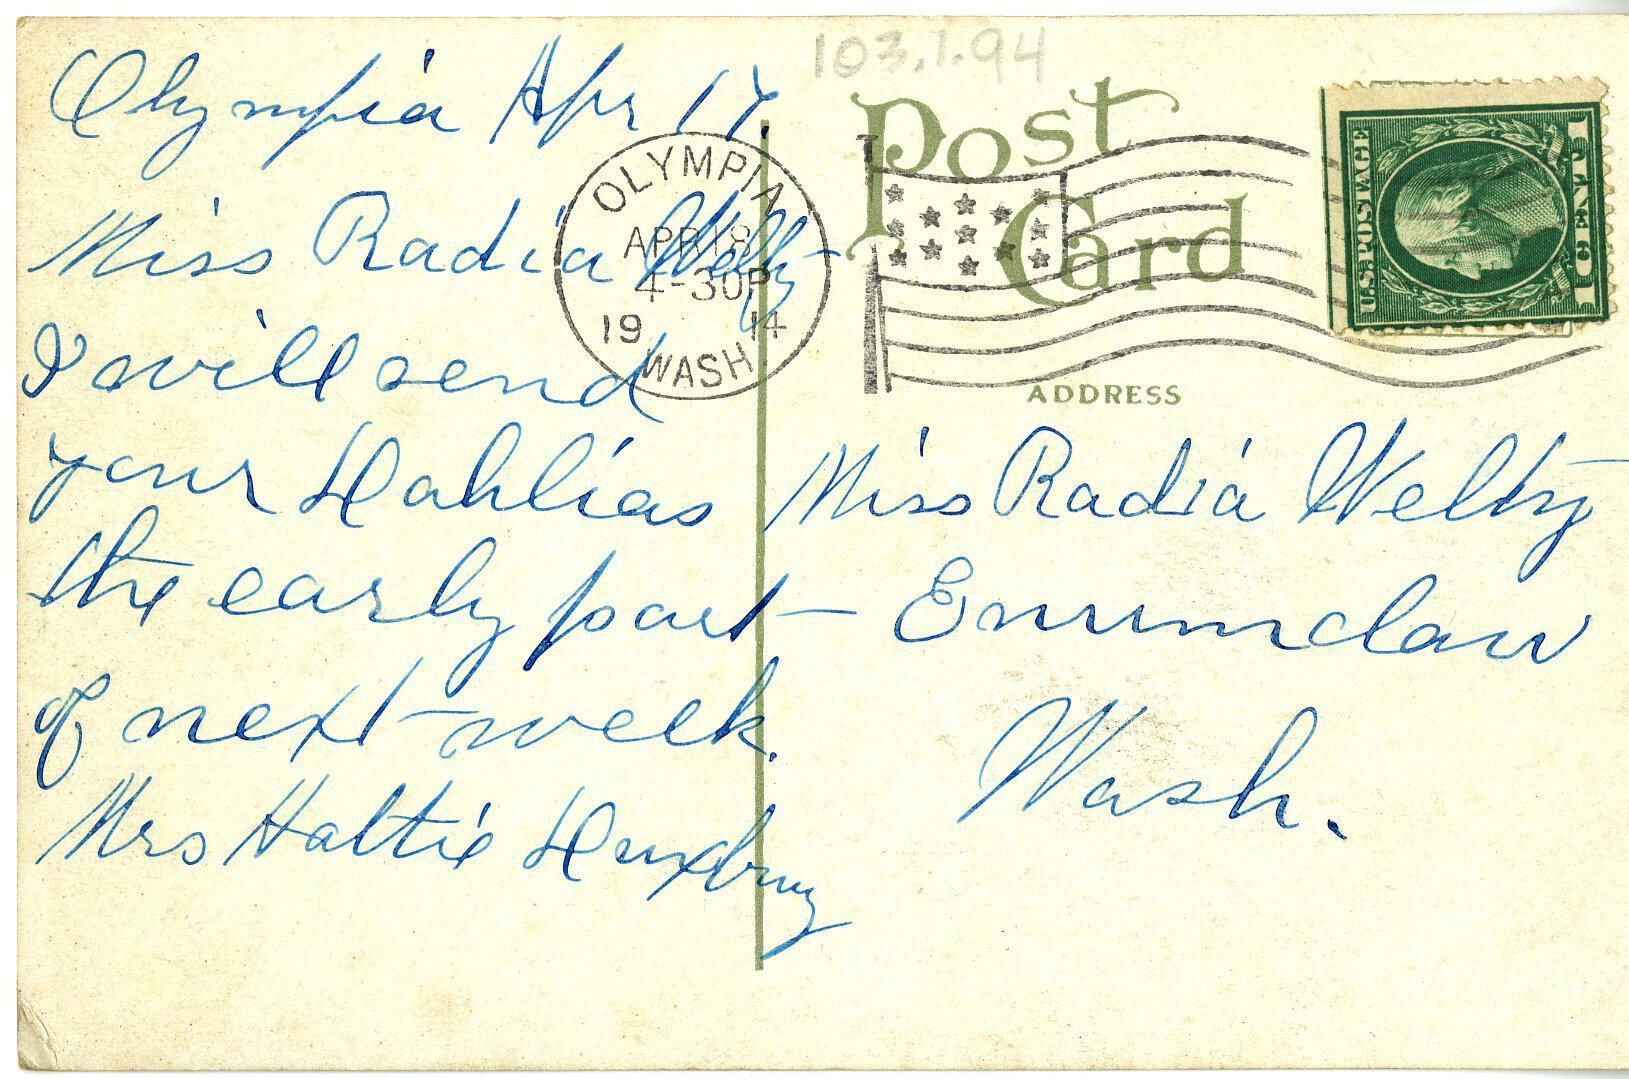 103.1.94
Olympia Apr 17.
Miss Radia Welty
I will send
your Dahlias
the early part
of next week.
Mrs Hattie
Post
Card
OLYMPIA
APR 18
4-30P
19 14
WASH
U.S. POSTAGE
1 CENT 1
ADDRESS
Miss Radia Welty
Enumclaw
Wash.